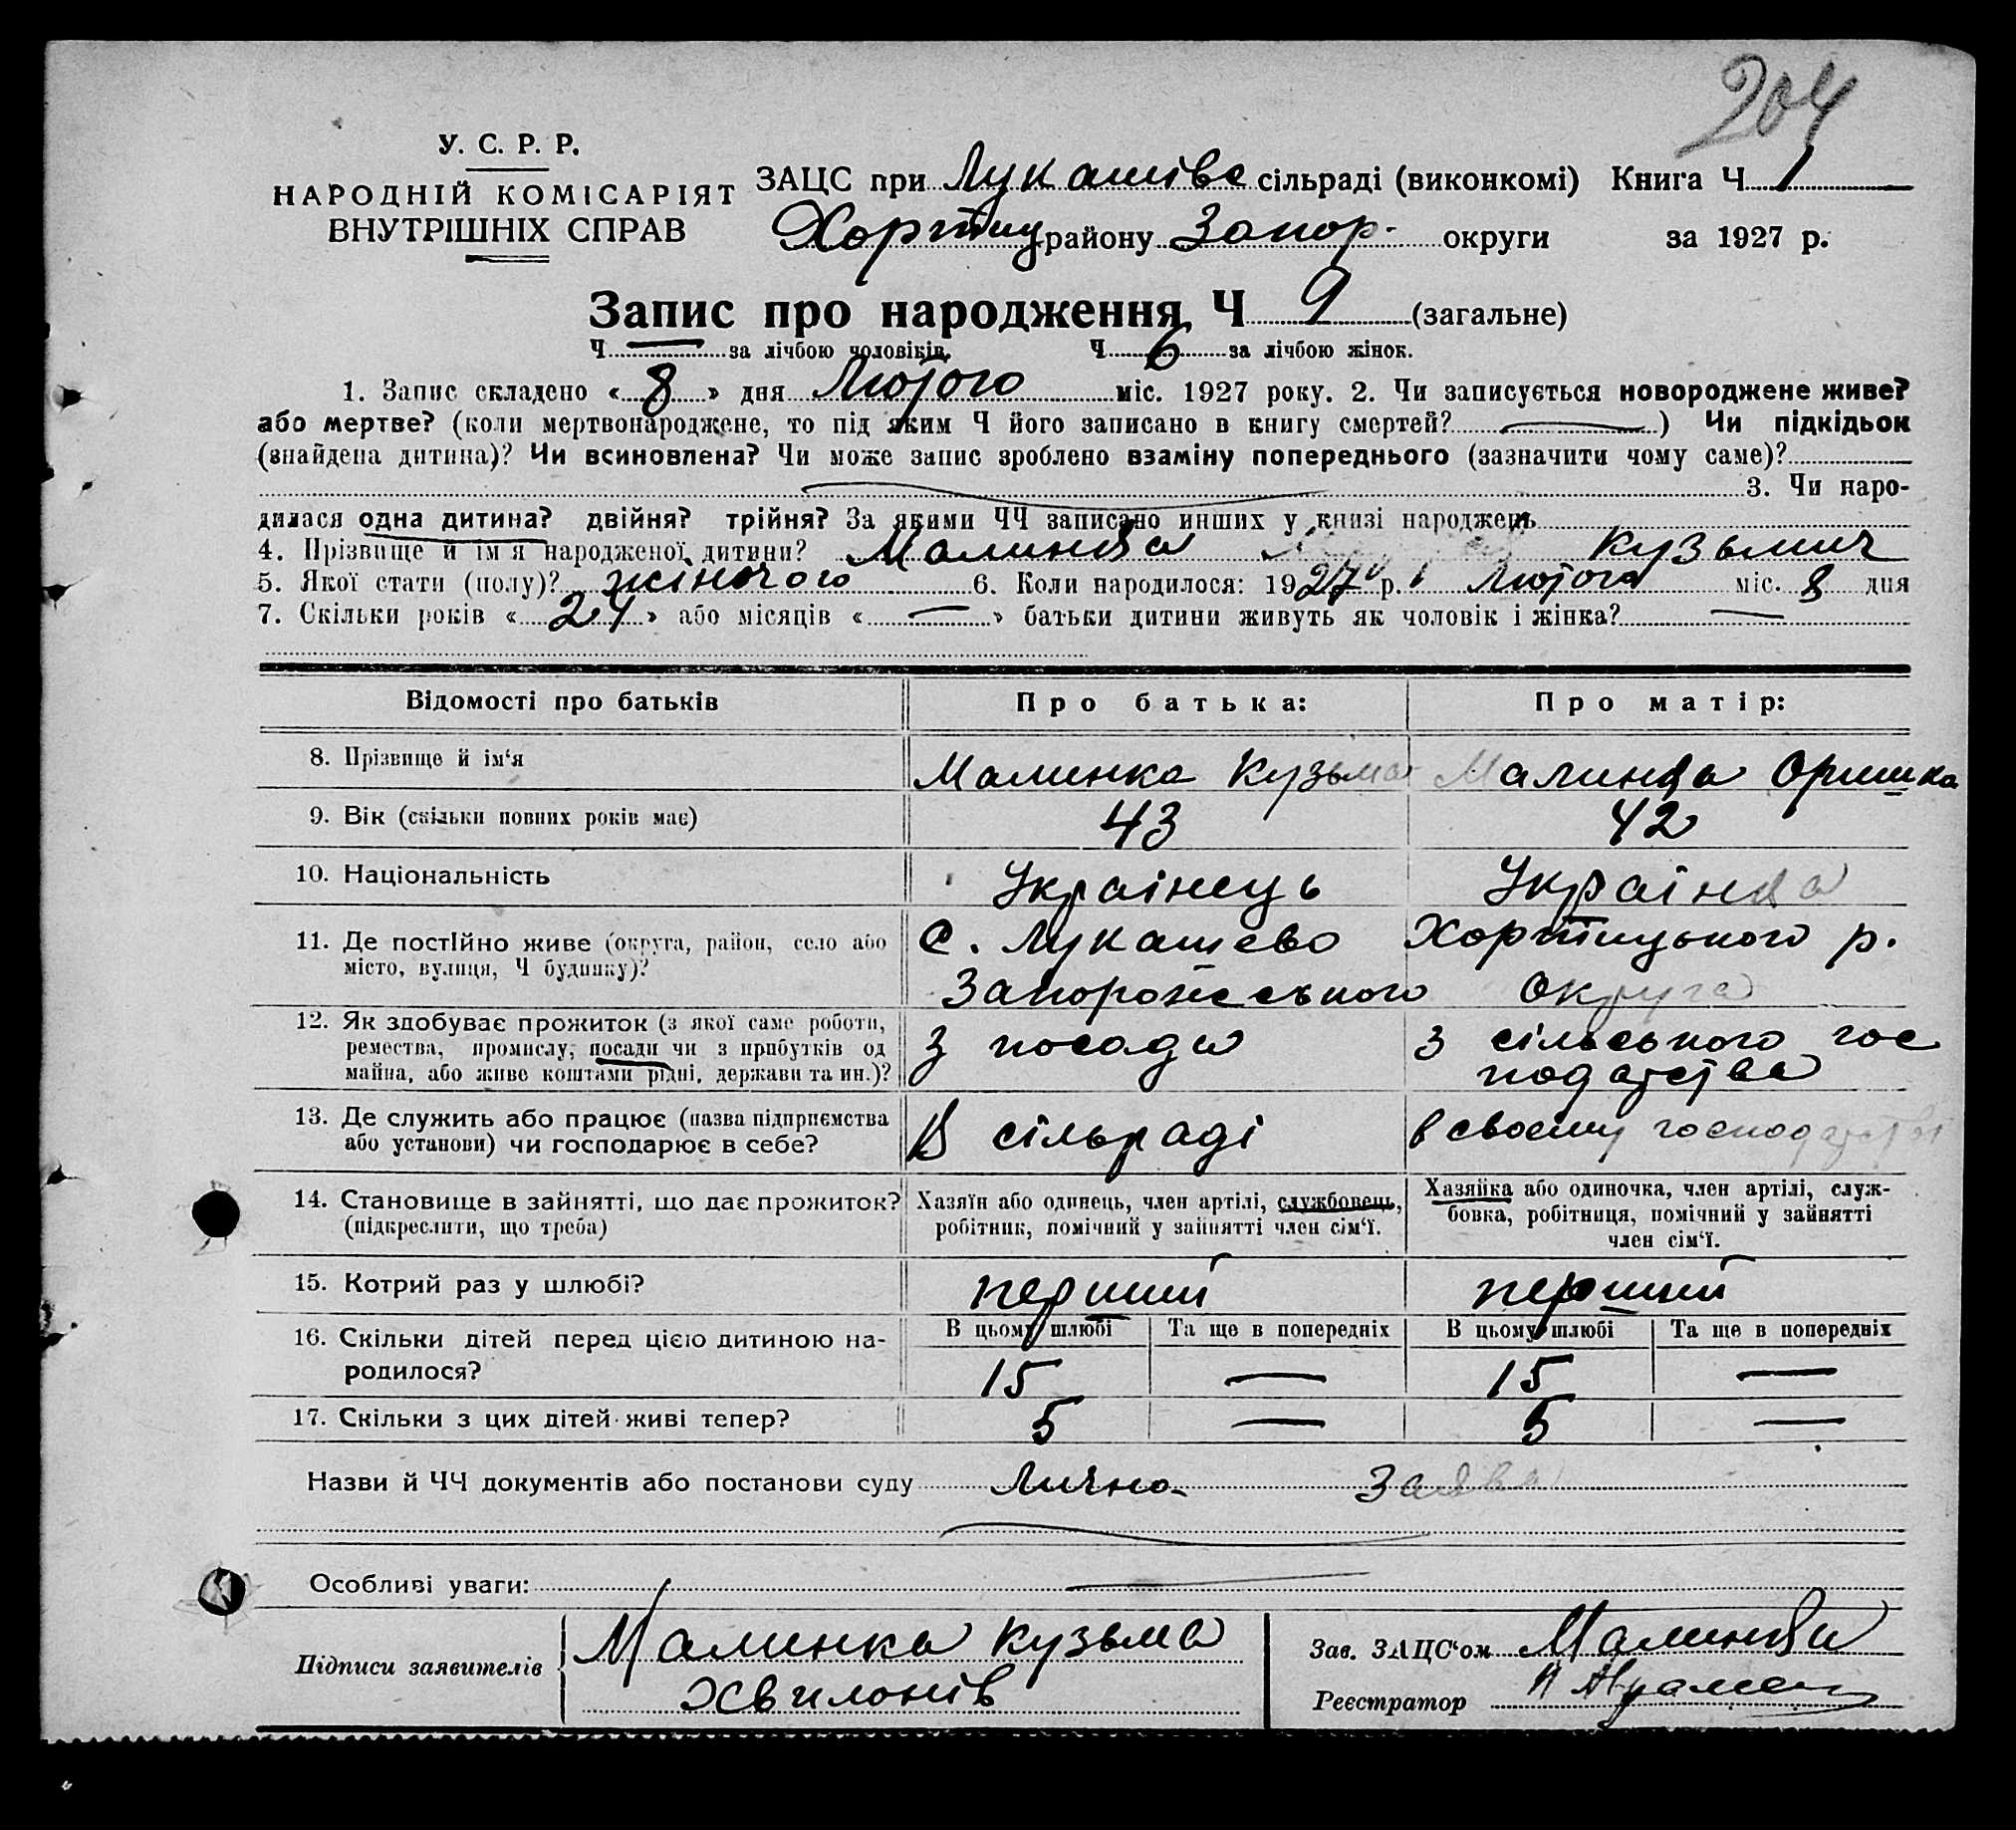 204
У. С. Р. Р.
НАРОДНІЙ КОМІСАРІЯТ
ВНУТРІШНІХ СПРАВ
ЗАЦС при Лукашівс сільраді (виконкомі) Книга Ч 1
Хортиц району Запор. округи за 1927 р.
Запис про народження Ч 9 (загальне)
Ч — за лічбою чоловіків. Ч 6 за лічбою жінок.
1. Запис складено « 8 » дня Лютого міс. 1927 року. 2. Чи записується новороджене живе?
або мертве? (коли мертвонароджене, то під яким Ч його записано в книгу смертей? — ) Чи підкідьок
(знайдена дитина)? Чи всиновлена? Чи може запис зроблено взаміну попереднього (зазначити чому саме)?
3. Чи наро-
дилася одна дитина? двійня? трійня? За якими ЧЧ записано инших у книзі народжень
4. Прізвище й ім'я народженої дитини? Малинка Кузьмич
5. Якої стати (полу)? жіночого 6. Коли народилося: 1927 р. Лютого міс. 8 дня
7. Скільки років « 24 » або місяців « — » батьки дитини живуть як чоловік і жінка? —
Відомості про батьків Про батька: Про матір:
8. Прізвище й ім'я Малинка Кузьма Малинка Оришка
9. Вік (скільки повних років має) 43 42
10. Національність Українець Українка
11. Де постійно живе (округа, район, село або С. Лукашево Хортицького р.
місто, вулиця, Ч будинку)? Запорожського Округа
12. Як здобуває прожиток (з якої саме роботи, з посади з сільського гос
ремества, промислу, посади чи з прибутків од подарства
майна, або живе коштами рідні, держави та ин.)?
13. Де служить або працює (назва підприємства В сільраді в своєму господарстві
або установи) чи господарює в себе?
14. Становище в зайнятті, що дає прожиток? Хазяїн або одинець, член артілі, службовець, Хазяйка або одиночка, член артілі, служ-
(підкреслити, що треба) робітник, помічний у зайнятті член сім'ї. бовка, робітниця, помічний у зайнятті
член сім'ї.
15. Котрий раз у шлюбі? перший перший
16. Скільки дітей перед цією дитиною на- В цьому шлюбі Та ще в попередніх В цьому шлюбі Та ще в попередніх
родилося? 15 — 15 —
17. Скільки з цих дітей живі тепер? 5 — 5 —
Назви й ЧЧ документів або постанови суду Лично Заява
Особливі уваги: —
Підписи заявителів Малинка Кузьма
Хвилонів
Зав. ЗАЦС'ом
Реєстратор